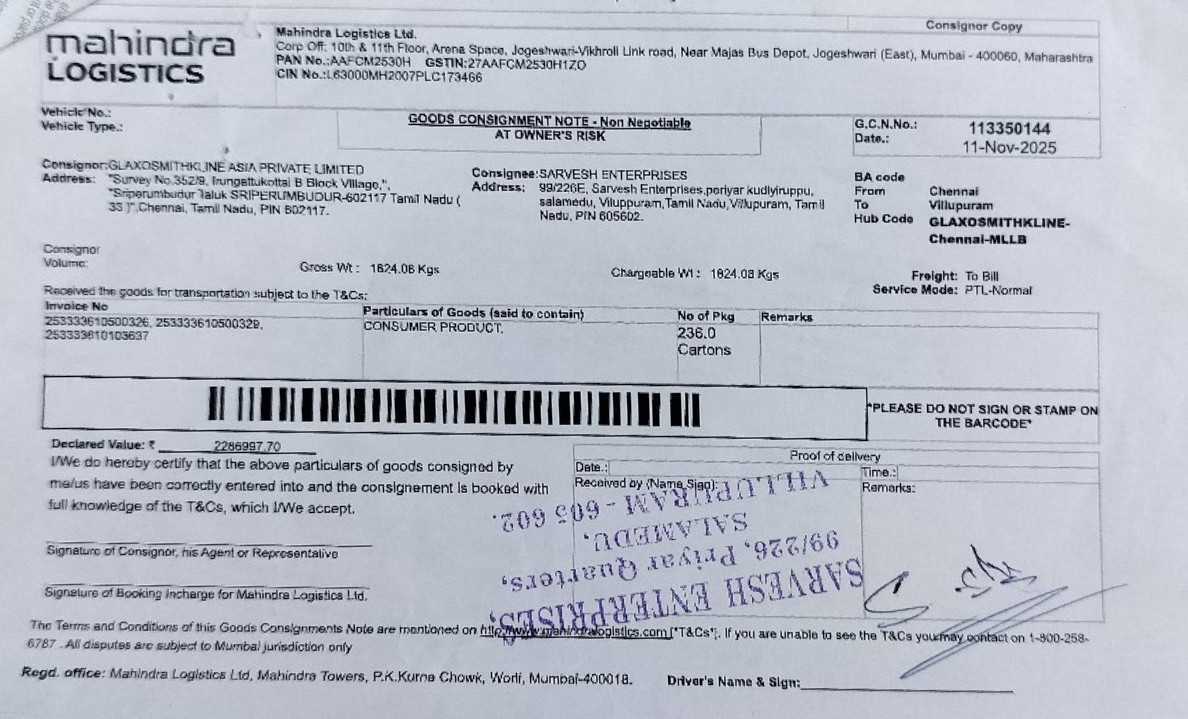 Consignor Copy
mahindra
LOGISTICS
Mahindra Logistics Ltd.
Corp Off: 10th & 11th Floor, Arena Space, Jogeshwari-Vikhroli Link road, Near Majas Bus Depot, Jogeshwari (East), Mumbai - 400060, Maharashtra
PAN No.:AAFCM2530H GSTIN:27AAFCM2530H1ZO
CIN No.:L63000MH2007PLC173466
Vehicle No.:
Vehicle Type.:
GOODS CONSIGNMENT NOTE - Non Negotiable
AT OWNER'S RISK
G.C.N.No.: 113350144
Date.: 11-Nov-2025
Consignor:GLAXOSMITHKLINE ASIA PRIVATE LIMITED
Address: "Survey No.352/9, Irungattukottai B Block Village,",
"Sriperumbudur Taluk SRIPERUMBUDUR-602117 Tamil Nadu (
33 )",Chennai, Tamil Nadu, PIN 602117.
Consignee:SARVESH ENTERPRISES
Address: 99/226E, Sarvesh Enterprises,periyar kudiyiruppu,
salamedu, Viluppuram,Tamil Nadu,Villupuram, Tamil
Nadu, PIN 605602.
BA code
From Chennai
To Villupuram
Hub Code GLAXOSMITHKLINE-
Chennai-MLLB
Consignor
Volume:
Gross Wt : 1824.08 Kgs
Chargeable Wt : 1824.08 Kgs
Freight: To Bill
Service Mode: PTL-Normal
Received the goods for transportation subject to the T&Cs:
Invoice No
253333610500326, 253333610500329,
253333610103637
Particulars of Goods (said to contain)
CONSUMER PRODUCT.
No of Pkg
236.0
Cartons
Remarks
*PLEASE DO NOT SIGN OR STAMP ON
THE BARCODE*
Declared Value: ₹ 2286997.70
I/We do hereby certify that the above particulars of goods consigned by
me/us have been correctly entered into and the consignment is booked with
full knowledge of the T&Cs, which I/We accept.
Signature of Consignor, his Agent or Representative
Signature of Booking Incharge for Mahindra Logistics Ltd.
Proof of delivery
Date.:
Time.:
Received by (Name Sign):
Remarks:
SARVESH ENTERPRISES,
99/226, Priyar Quarters,
SALAMEDU,
VILLUPURAM - 605 602.
The Terms and Conditions of this Goods Consignments Note are mentioned on http://www.mahindralogistics.com ["T&Cs"]. If you are unable to see the T&Cs you may contact on 1-800-258-
6787 . All disputes are subject to Mumbai jurisdiction only
Regd. office: Mahindra Logistics Ltd, Mahindra Towers, P.K.Kurne Chowk, Worli, Mumbai-400018.
Driver's Name & Sign: